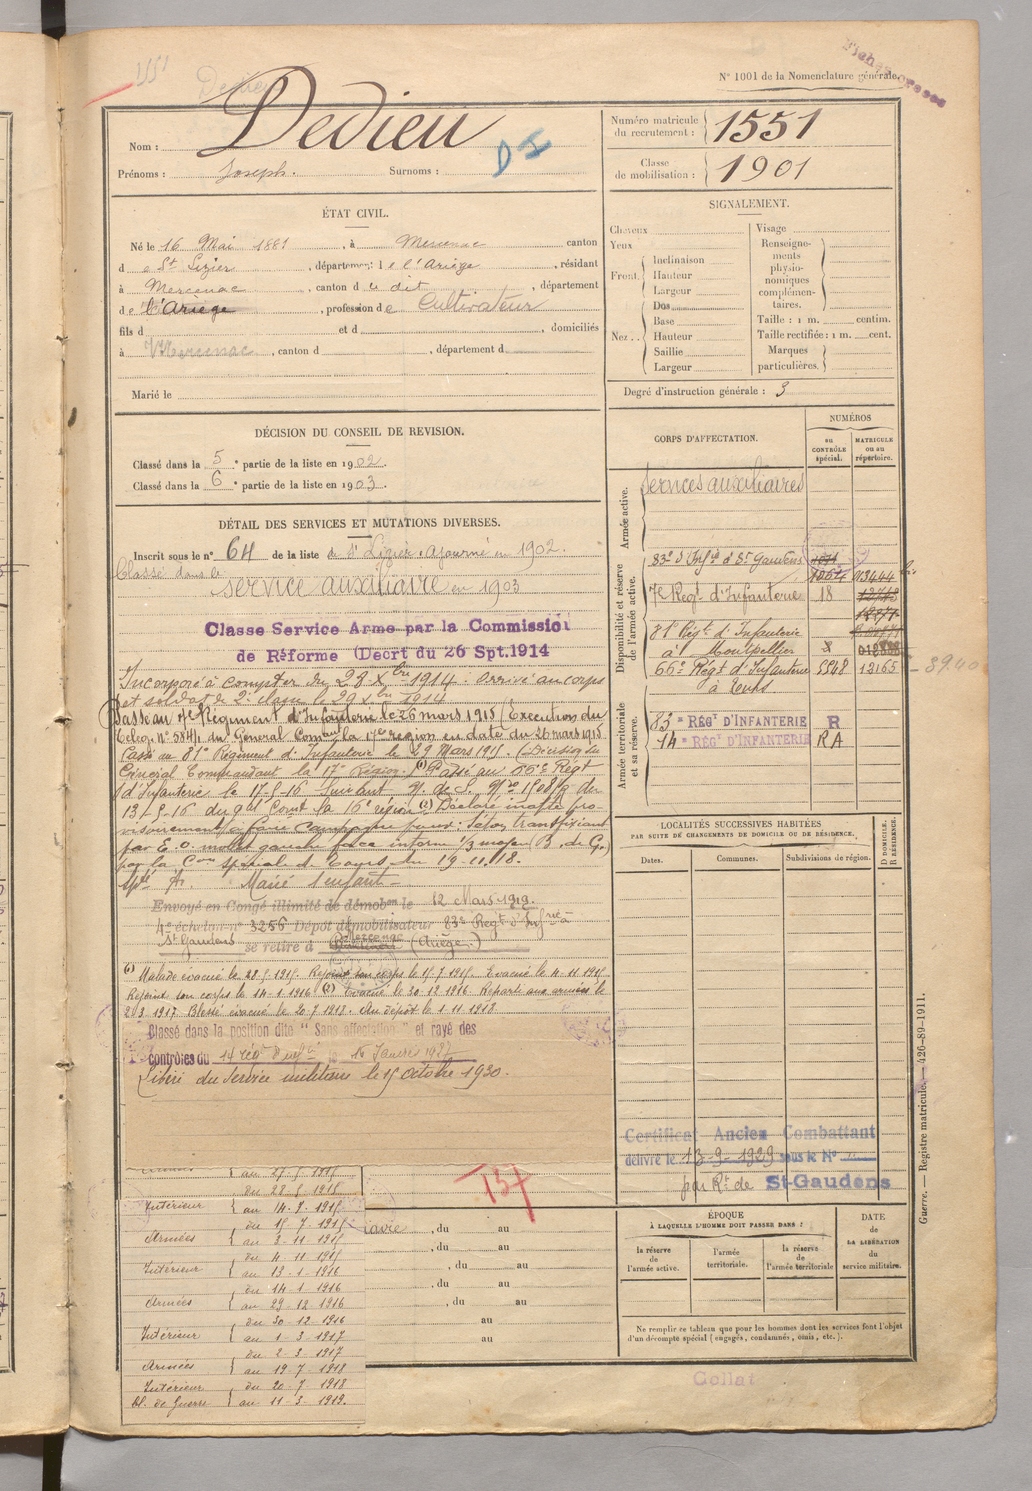 1551
Dedieu
N° 1001 de la Nomenclature générale.
Nom : Dedieu
D I
Prénoms : Joseph. Surnoms :
Numéro matricule du recrutement : 1551
Classe de mobilisation : 1901
ÉTAT CIVIL.
Né le 16 Mai 1881, à Mercenac canton
d e St Lizier, département de l'Ariège, résidant
à Mercenac, canton du dit, département
de l'Ariège, profession de Cultivateur
fils d et d , domiciliés
à Mercenac, canton d , département d
Marié le
SIGNALEMENT.
Cheveux
Yeux
Front. Inclinaison
Hauteur
Largeur
Nez.. Dos
Base
Hauteur
Saillie
Largeur
Visage
Renseignements physionomiques complémentaires.
Taille : 1 m. centim.
Taille rectifiée : 1 m. cent.
Marques particulières.
Degré d'instruction générale : 3
DÉCISION DU CONSEIL DE REVISION.
Classé dans la 5 e partie de la liste en 1902.
Classé dans la 6 e partie de la liste en 1903.
DÉTAIL DES SERVICES ET MUTATIONS DIVERSES.
Inscrit sous le n° 64 de la liste de St Lizier. Ajourné en 1902.
Classé dans le
service auxiliaire en 1903
Classe Service Arme par la Commission
de Réforme (Decrt du 26 Spt.1914
Incorporé à compter du 28 Xbre 1914. Arrivé au corps
et soldat de 2e classe le 29 Xbre 1914
Passé au 7e Régiment d'Infanterie le 26 mars 1915 (Exécution du
Télég. N° 584/1 du Général Comm la 17e région en date du 26 mars 1915
Passé au 81e Régiment d'Infanterie le 29 Mars 1915 (Décision du
Général Commandant la 17e Région. (1) Passé au 66e Régt
d'Infanterie le 17-5-16 Suivant
13-5-16 du Gal Comt la 16e région (2) Déclaré inapte pro-
visoirement à faire campagne pour : Sétou, transfixiant
par E.O. mollet gauche face interne 1/3 moyen (B. de G.)
par la Con spéciale de Tours du 19.11.18.
Marié 1 enfant
Envoyé en Congé illimité de démobon le 12 Mars 1919.
4e échelon n° 3256 Dépôt démobilisateur 83e Régt d'Infrie à
St Gaudens se retire à Mercenac (Ariège)
(1) Malade évacué le 28.5.1915. Rejoint son corps le 15.7.1915. Evacué le 4.11.1915
Rejoint son corps le 14.1.1916 (2) Evacué le 30.12.1916. Reparti aux armées le
2.3.1917 Blessé évacué le 20.7.1918. Au dépôt le 1.11.1918.
Classé dans la position dite "Sans affectation" et rayé des
contrôles du 14 rég d'infie le 16 Janvier 1927
Libéré du service militaire le 15 octobre 1930.
CORPS D'AFFECTATION.
NUMÉROS
au CONTRÔLE spécial.
MATRICULE ou au répertoire.
Armée active.
Services auxiliaires
Disponibilité et réserve de l'armée active.
83e d'Infie à St Gaudens
7e Régt d'Infanterie 18
81e Régt d'Infanterie
à Montpellier
66e Régt d'Infanterie 5548 12165
à Tours.
Armée territoriale et sa réserve.
83e RÉGt D'INFANTERIE R
14e RÉGt D'INFANTERIE RA
LOCALITÉS SUCCESSIVES HABITÉES
PAR SUITE DE CHANGEMENTS DE DOMICILE OU DE RÉSIDENCE.
Dates. Communes. Subdivisions de région.
D DOMICILE. R RÉSIDENCE.
Certificat Ancien Combattant
délivré le 13-9-1929 sous le N°
par Rt de St-Gaudens
157
au 27-5-1915
Intérieur { du 28-5-1915
au 14-7-1915
Armées { du 15-7-1915
au 3-11-1915
Intérieur { du 4-11-1915
au 13-1-1916
Armées { du 14-1-1916
au 29-12-1916
Intérieur { du 30-12-1916
au 1-3-1917
Armées { du 2-3-1917
au 19-7-1918
Intérieur { du 20-7-1918
bl. de Guerre au 11-3-1919.
, du au
, du au
, du au
, du au
, du au
au
au
ÉPOQUE
À LAQUELLE L'HOMME DOIT PASSER DANS :
la réserve de l'armée active.
l'armée territoriale.
la réserve de l'armée territoriale
DATE de LA LIBÉRATION du service militaire.
Ne remplir ce tableau que pour les hommes dont les services font l'objet
d'un décompte spécial (engagés, condamnés, omis, etc.).
Guerre. — Registre matricule. — 426-89-1911.
Collat